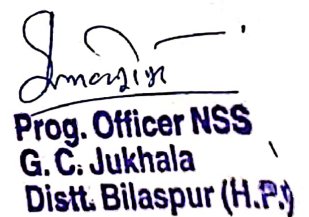 Prog. Officer NSS
G. C. Jukhala
Distt. Bilaspur (H.P.)